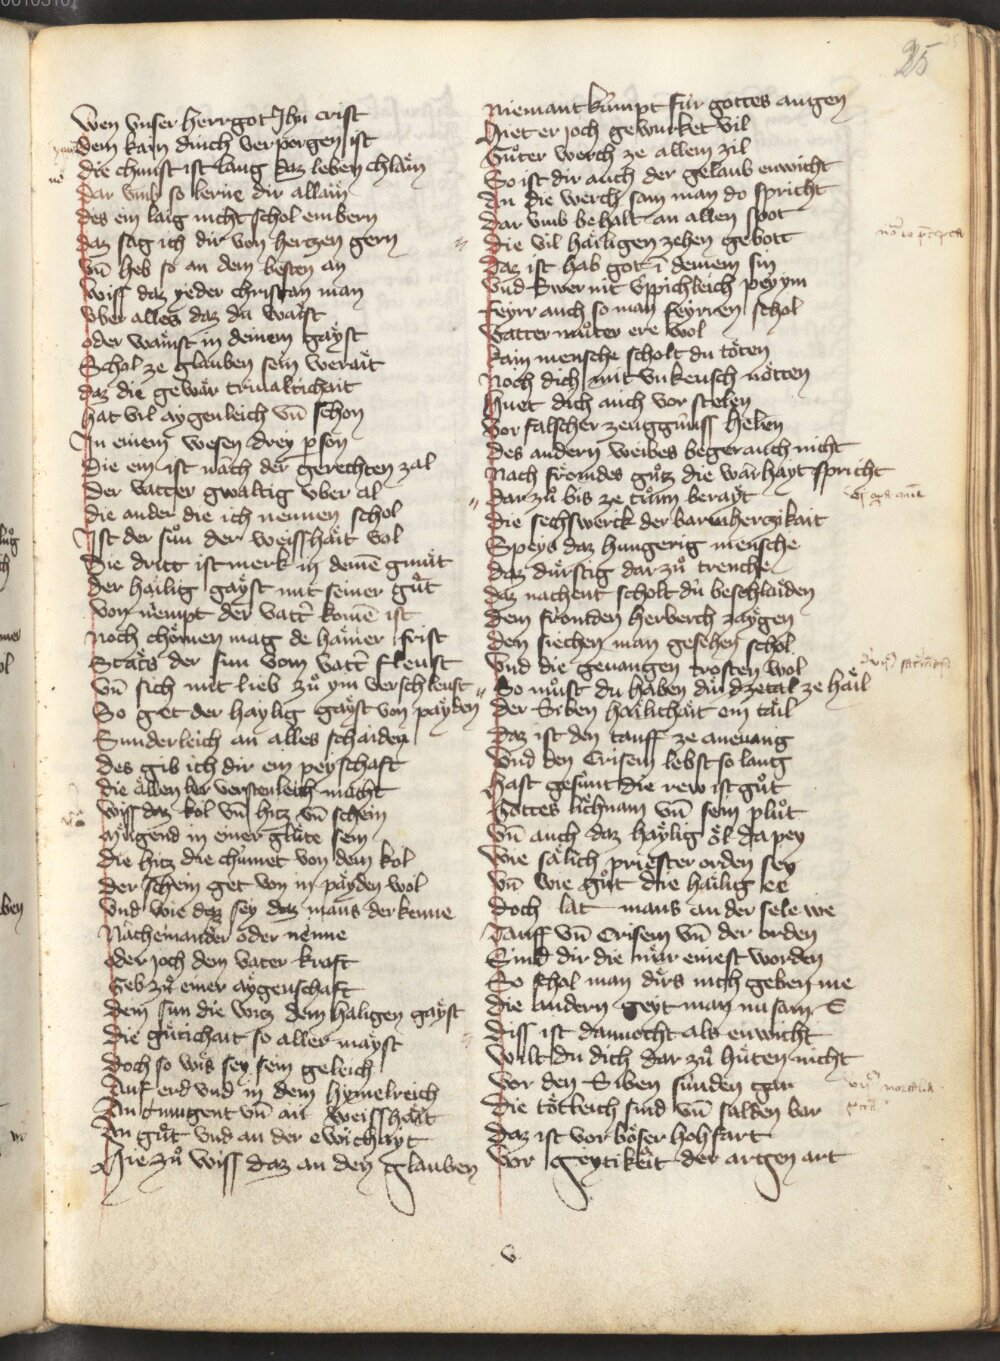 25
Wen vnser herrgot Jhu crist
Dem kain dinch verporgen ist
die chunst ist lang daz leben chlain
Dar vmb so lerne dir allain
des ein laig nicht schol enbern
daz sag ich dir von hertzen gern
vn̄ heb so an dem besten an
Wiss daz yeder christan man
vber alles daz du waist
oder wainst in deinem gayst
Schol ze glauben sein werait
daz die gewär triualtichait
hat vil aygenleich vn̄ schon
In einem wesen drey pson
die ein ist nach der gerechten zal
Der vatter gwaltig vber al
die ander die ich nennen schol
Ist der sun̊ der weisshait vol
Die dritt ist merk in demē gmüt
der hailig gayst mit seiner gut̊
von nempt der vatt' komē ist
noch chömen mag de hainer frist
Stätz der sun vom vatt' fleust
vn̄ sich mit lieb zů ym verschleust
So get der haylig gayst von payden
Sunderleich an alles schaiden
des gib ich dir ein peyschaft
die allen verstenleich macht
Wiss daz kol vn̄ hitz vn̄ schein
Mügend in einer glüte sein
die hitz die chumet von dem kol
der schein get von in payden wol
Vnd wie daz sey daz mans derkenne
Nacheinander oder nenne
oder joch dem vater kraft
Geb zů einer aygenschaft
dem sun die witz dem hailigen gayst
die gutichait so aller mayst
doch so wis sey sein geleich
Auf erd vnd in dem hymelreich
An tmugent vn̄ an weisshait
An gůt vnd an der ewichayt
Hie zů wiss daz an den glauben
Niemant kumpt für gottes augen
Hiet er joch gewurket vil
Guter werch ze allem zil
So ist dir auch der gelaub enwicht
An die werch sam man do spricht
Dar vmb behalt an allen spot
die vil hailigen zehen gebott
Daz ist hab got ī deinem sin
Vnd Swer nit vppichleich pey ym
Feyrr auch so man feyrren schol
Vatter muter ere wol
kain mensche scholt du töten
Noch dich mit vnkeusch nötten
Huet dich auch vor stelen
Vor falscher zeuggnuss helen
des andern weibes beger auch nicht
Nach frömdes gůtz die warhayt spricht
dar zů bis ze tün berayt
die sechs werck der barmherczikait
Speys daz hungerig mensche
daz dürstig dar zů trenche
daz nachent scholt du beschlaiden
dem frömden herberch zaygen
den siechen man gesehen schol
Vnd die geuangen trosten wol
So must du haben an dzettl ze hail
der Siben hailichait ein tail
daz ist den tauff ze aneuang
Vnd den Crisem lebst so lang
hast gesünt die rew ist gůt
Gottes lichnam vn̄ sein plůt
Vn̄ auch daz haylig öl da pey
Wie sälich priester orden sey
Vn̄ wie gůt die hailig ee
doch lat mans an der sele we
Tauff vn̄ Crisem vn̄ der orden
Sind dir die nar einest worden
So schol man dirs nich geben me
die andern geyt man nu sam E
Diss ist dannocht als enwicht
Wilt du dich dar zů hüten nicht
Vor den Siben sünden gar
Die tötleich sind vn̄ salden bar
daz ist vor böser hohfart
Vor geytikeit der argen art
v